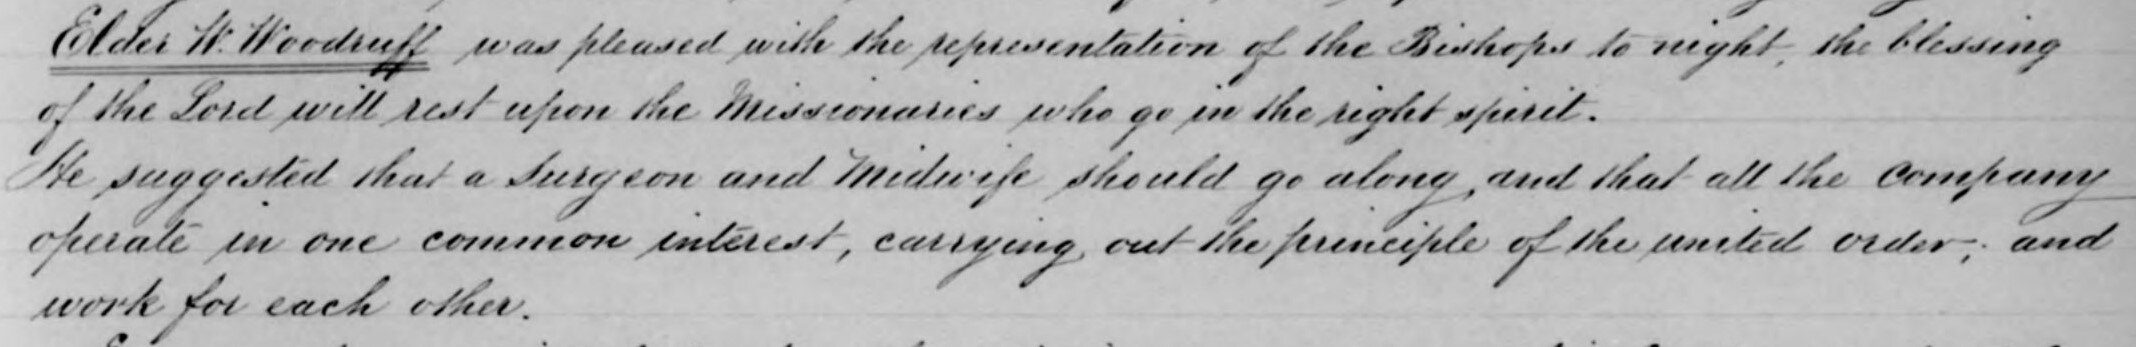 Elder W. Woodruff was pleased with the representation of the Bishops to night, the blessing
of the Lord will rest upon the Missionaries who go in the right spirit.
He suggested that a Surgeon and Midwife should go along, and that all the company
operate in one common interest, carrying out the principle of the united order; and
work for each other.